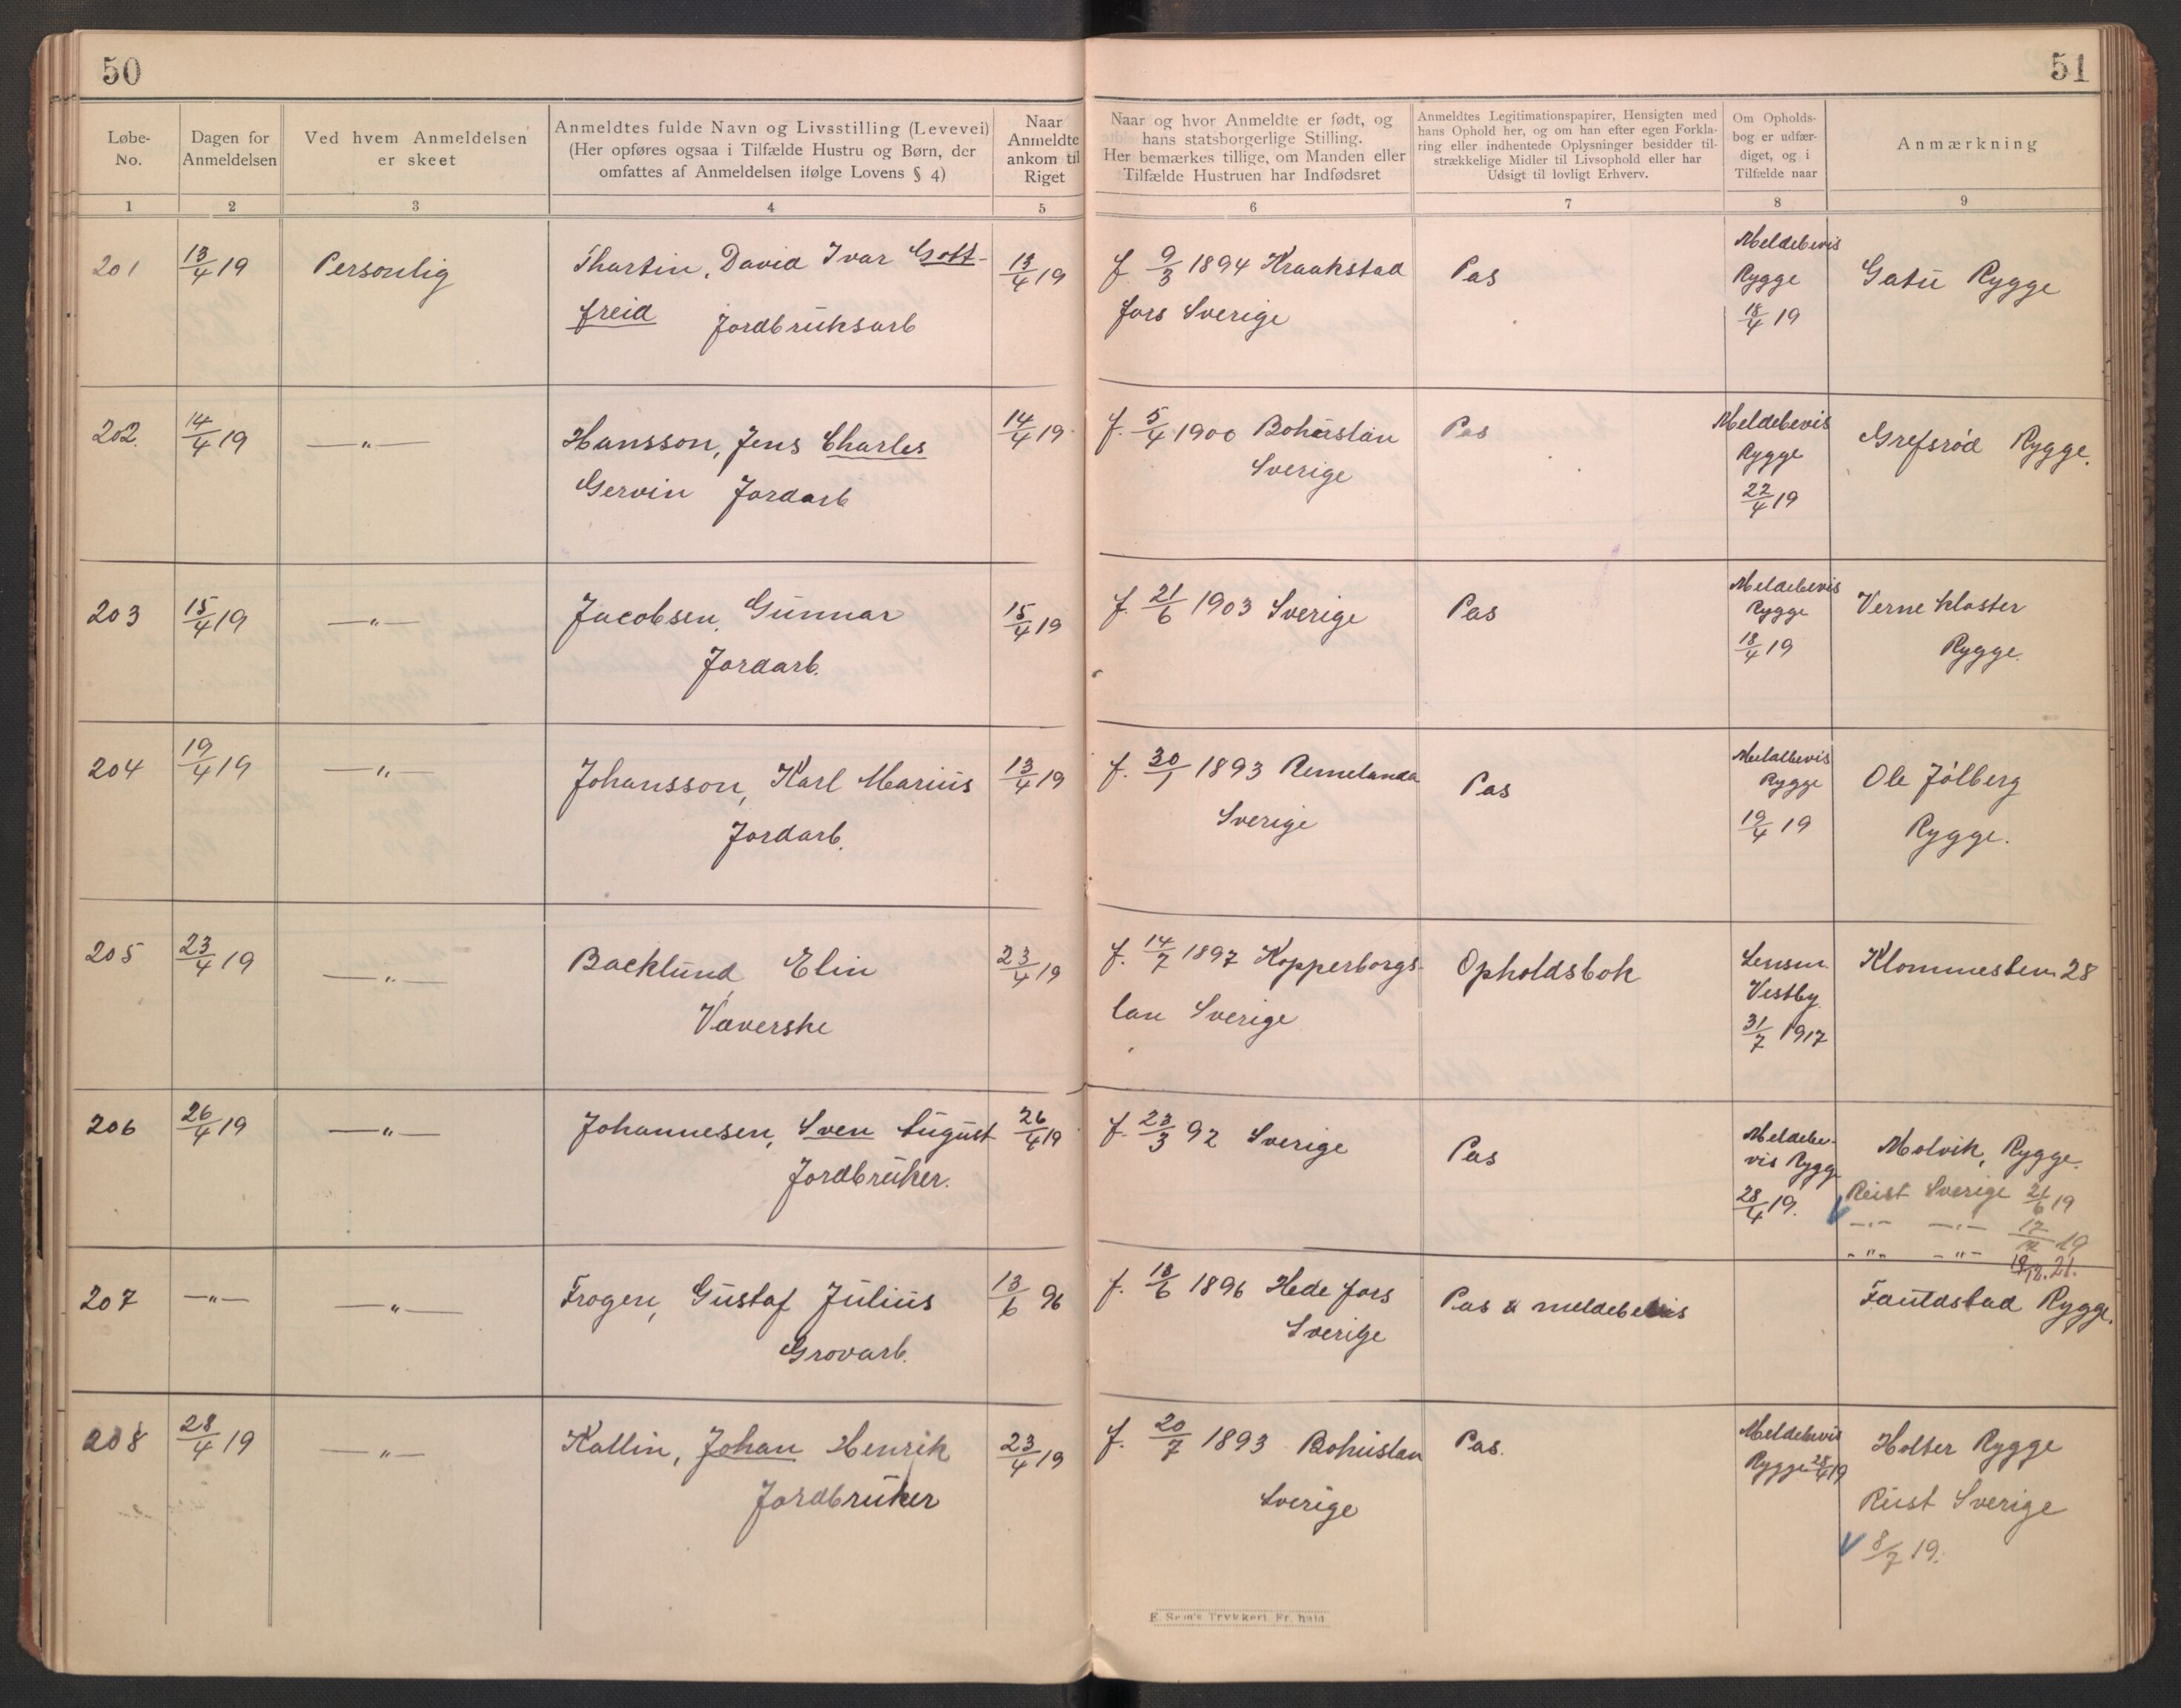 50
Løbe-
No.
Dagen for
Anmeldelsen
Ved hvem Anmeldelsen
er skeet
Anmeldtes fulde Navn og Livsstilling (Levevei)
(Her opføres ogsaa i Tilfælde Hustru og Børn, der
omfattes af Anmeldelsen ifølge Lovens § 4)
Naar
Anmeldte
ankom til
Riget
1 2 3 4 5
201 13/4 19 Personlig Thartin, David Ivar Gott- 13/4 19
freid Jordbruksarb
202. 14/4 19 —"— Hansson, Jens Charles 14/4 19
Gervin Jordarb
203 15/4 19 —"— Jacobsen, Gunnar 15/4 19
Jordarb.
204 19/4 19 —"— Johansson, Karl Marius 13/4 19
Jordarb.
205 23/4 19 —"— Backlund, Elin 23/4 19
Væverske
206 26/4 19 —"— Johannesen, Sven August 26/4 19
Jordbruker.
207 —"— —"— Frogen, Gustaf Julius 13/6 96
Grovarb.
208 28/4 19 —"— Kallin, Johan Henrik 23/4 19
Jordbruker
51
Naar og hvor Anmeldte er født, og
hans statsborgerlige Stilling.
Her bemærkes tillige, om Manden eller
Tilfælde Hustruen har Indfødsret
Anmeldtes Legitimationspapirer, Hensigten med
hans Ophold her, og om han efter egen Forkla-
ring eller indhentede Oplysninger besidder til-
strækkelige Midler til Livsophold eller har
Udsigt til lovligt Erhverv.
Om Opholds-
bog er udfær-
diget, og i
Tilfælde naar
Anmærkning
6 7 8 9
f. 9/3 1894 Kraakstad Pas Meldebevis
Rygge Gatu Rygge
fors Sverige 18/4 19
f. 5/4 1900 Bohuslän Pas Meldebevis
Sverige Rygge Grefsrød Rygge.
22/4 19
f. 21/6 1903 Sverige Pas Meldebevis
Rygge Verne Kloster
18/4 19 Rygge.
f. 30/1 1893 Remelanda Pas Meldebevis
Sverige Rygge Ole Jølberg
19/4 19 Rygge.
f. 14/7 1897 Kopperborgs- Opholdsbok Lensm. Klommesten 28
lan Sverige Vestby
31/7 1917
f. 23/3 92 Sverige Pas Meldebe-
vis Rygg Molvik, Rygge.
28/4 19. Reist Sverige 21/6 19
—"— —"— 17/12 19
—"— —"— 19/12. 21.
f. 13/6 1896 Hede fors Pas & meldebevis Fauldstad Rygge.
Sverige
f. 20/7 1893 Bohuslan Pas. Meldebevis Holter Rygge
Sverige Rygge 28/4 19
Reist Sverige
8/7 19.
E. Sem's Trykkeri, Fr.hald